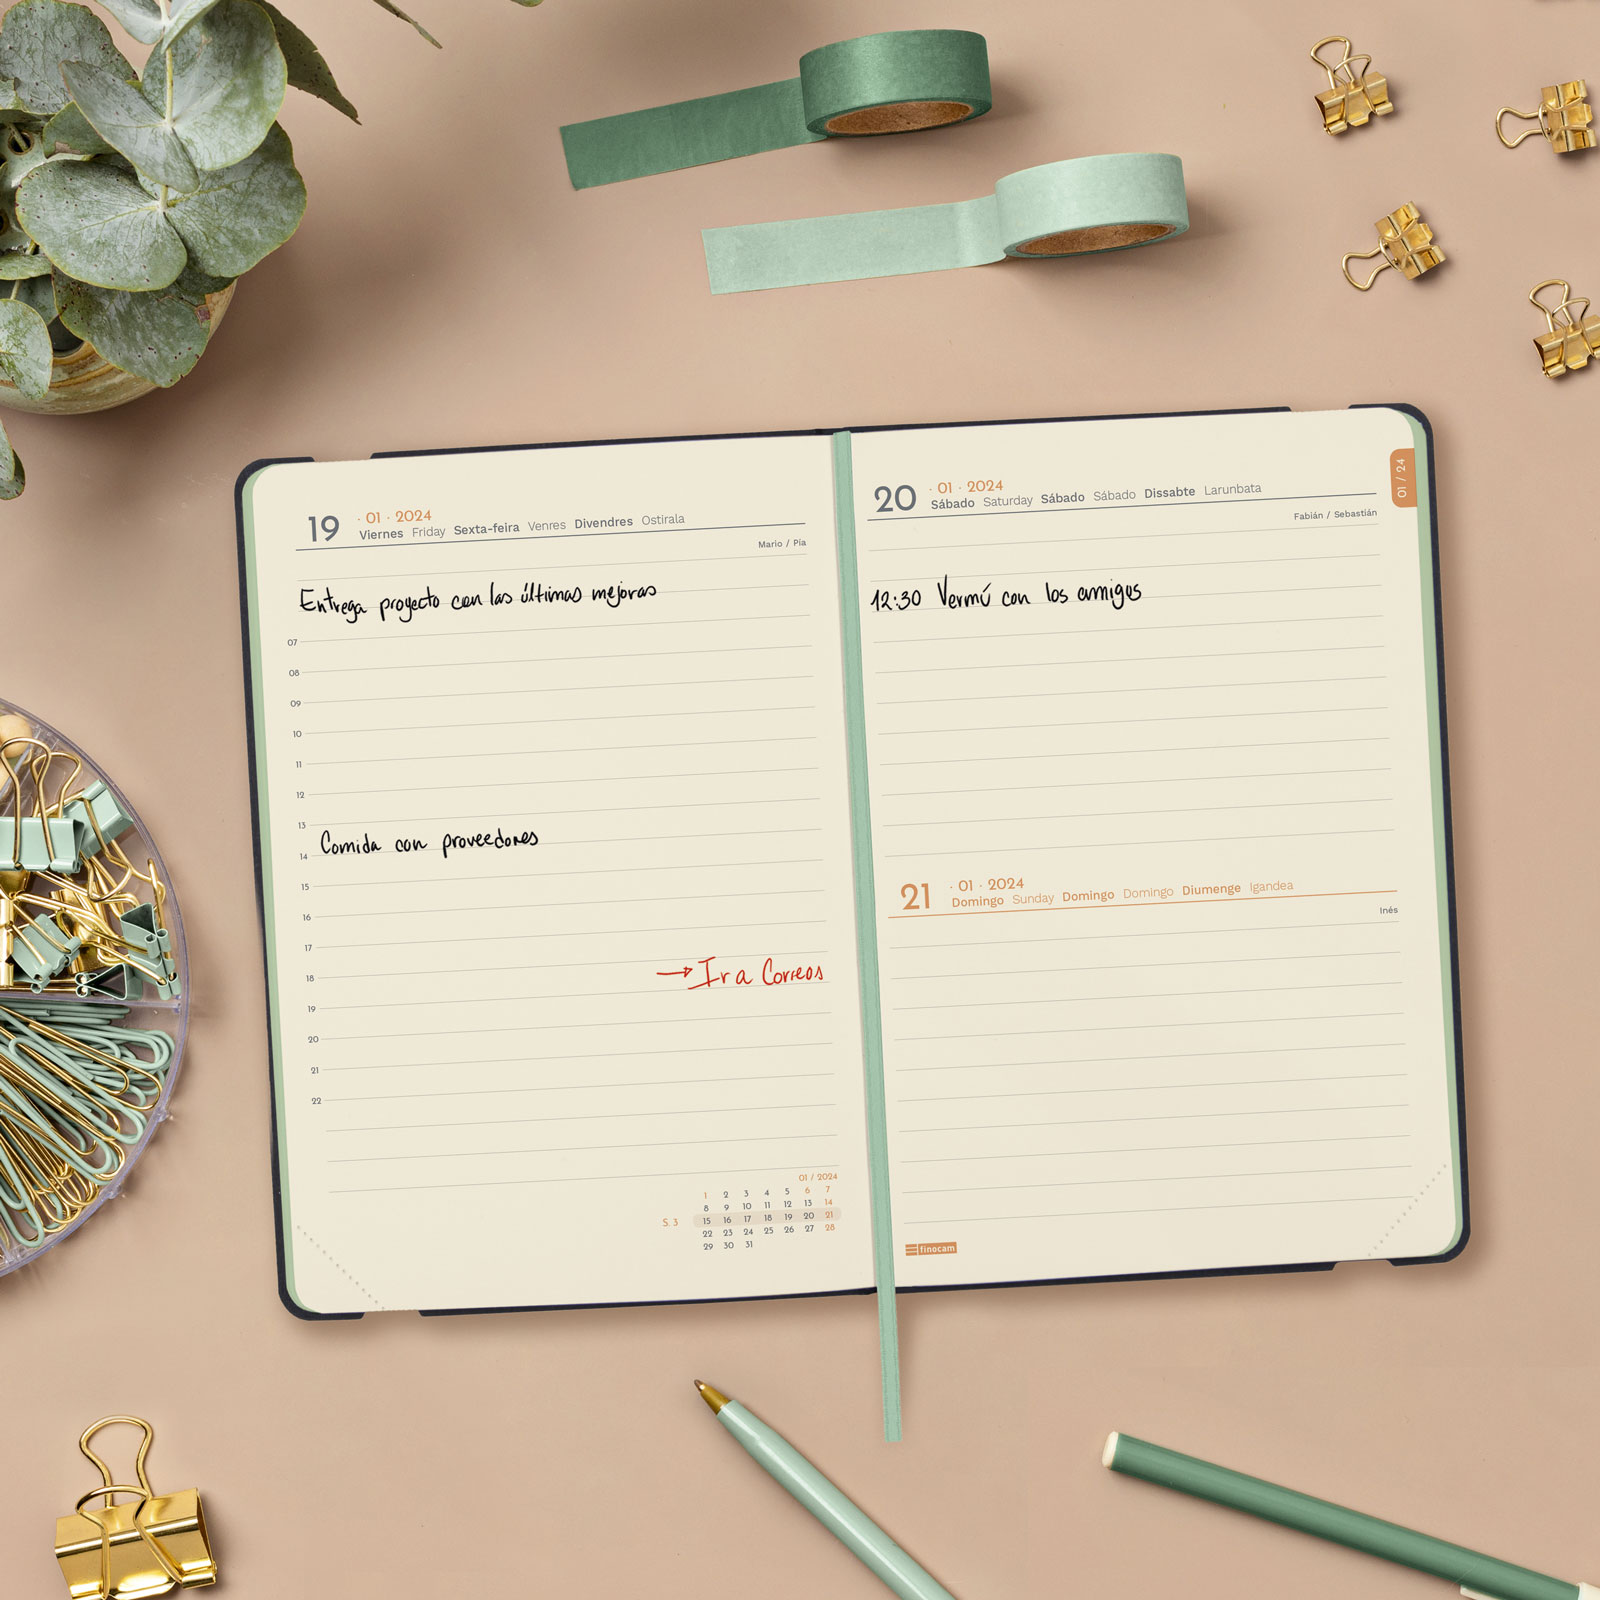 19 · 01 · 2024
Viernes Friday Sexta-feira Venres Divendres Ostirala
Mario / Pía
Entrega proyecto con las últimas mejoras
07
08
09
10
11
12
13
14 Comida con proveedores
15
16
17
18 → Ir a Correos
19
20
21
22
01 / 2024
1 2 3 4 5 6 7
8 9 10 11 12 13 14
S. 3 15 16 17 18 19 20 21
22 23 24 25 26 27 28
29 30 31
20 · 01 · 2024
Sábado Saturday Sábado Sábado Dissabte Larunbata
Fabián / Sebastián
01 / 24
12:30 Vermú con los amigos
21 · 01 · 2024
Domingo Sunday Domingo Domingo Diumenge Igandea
Inés
finocam